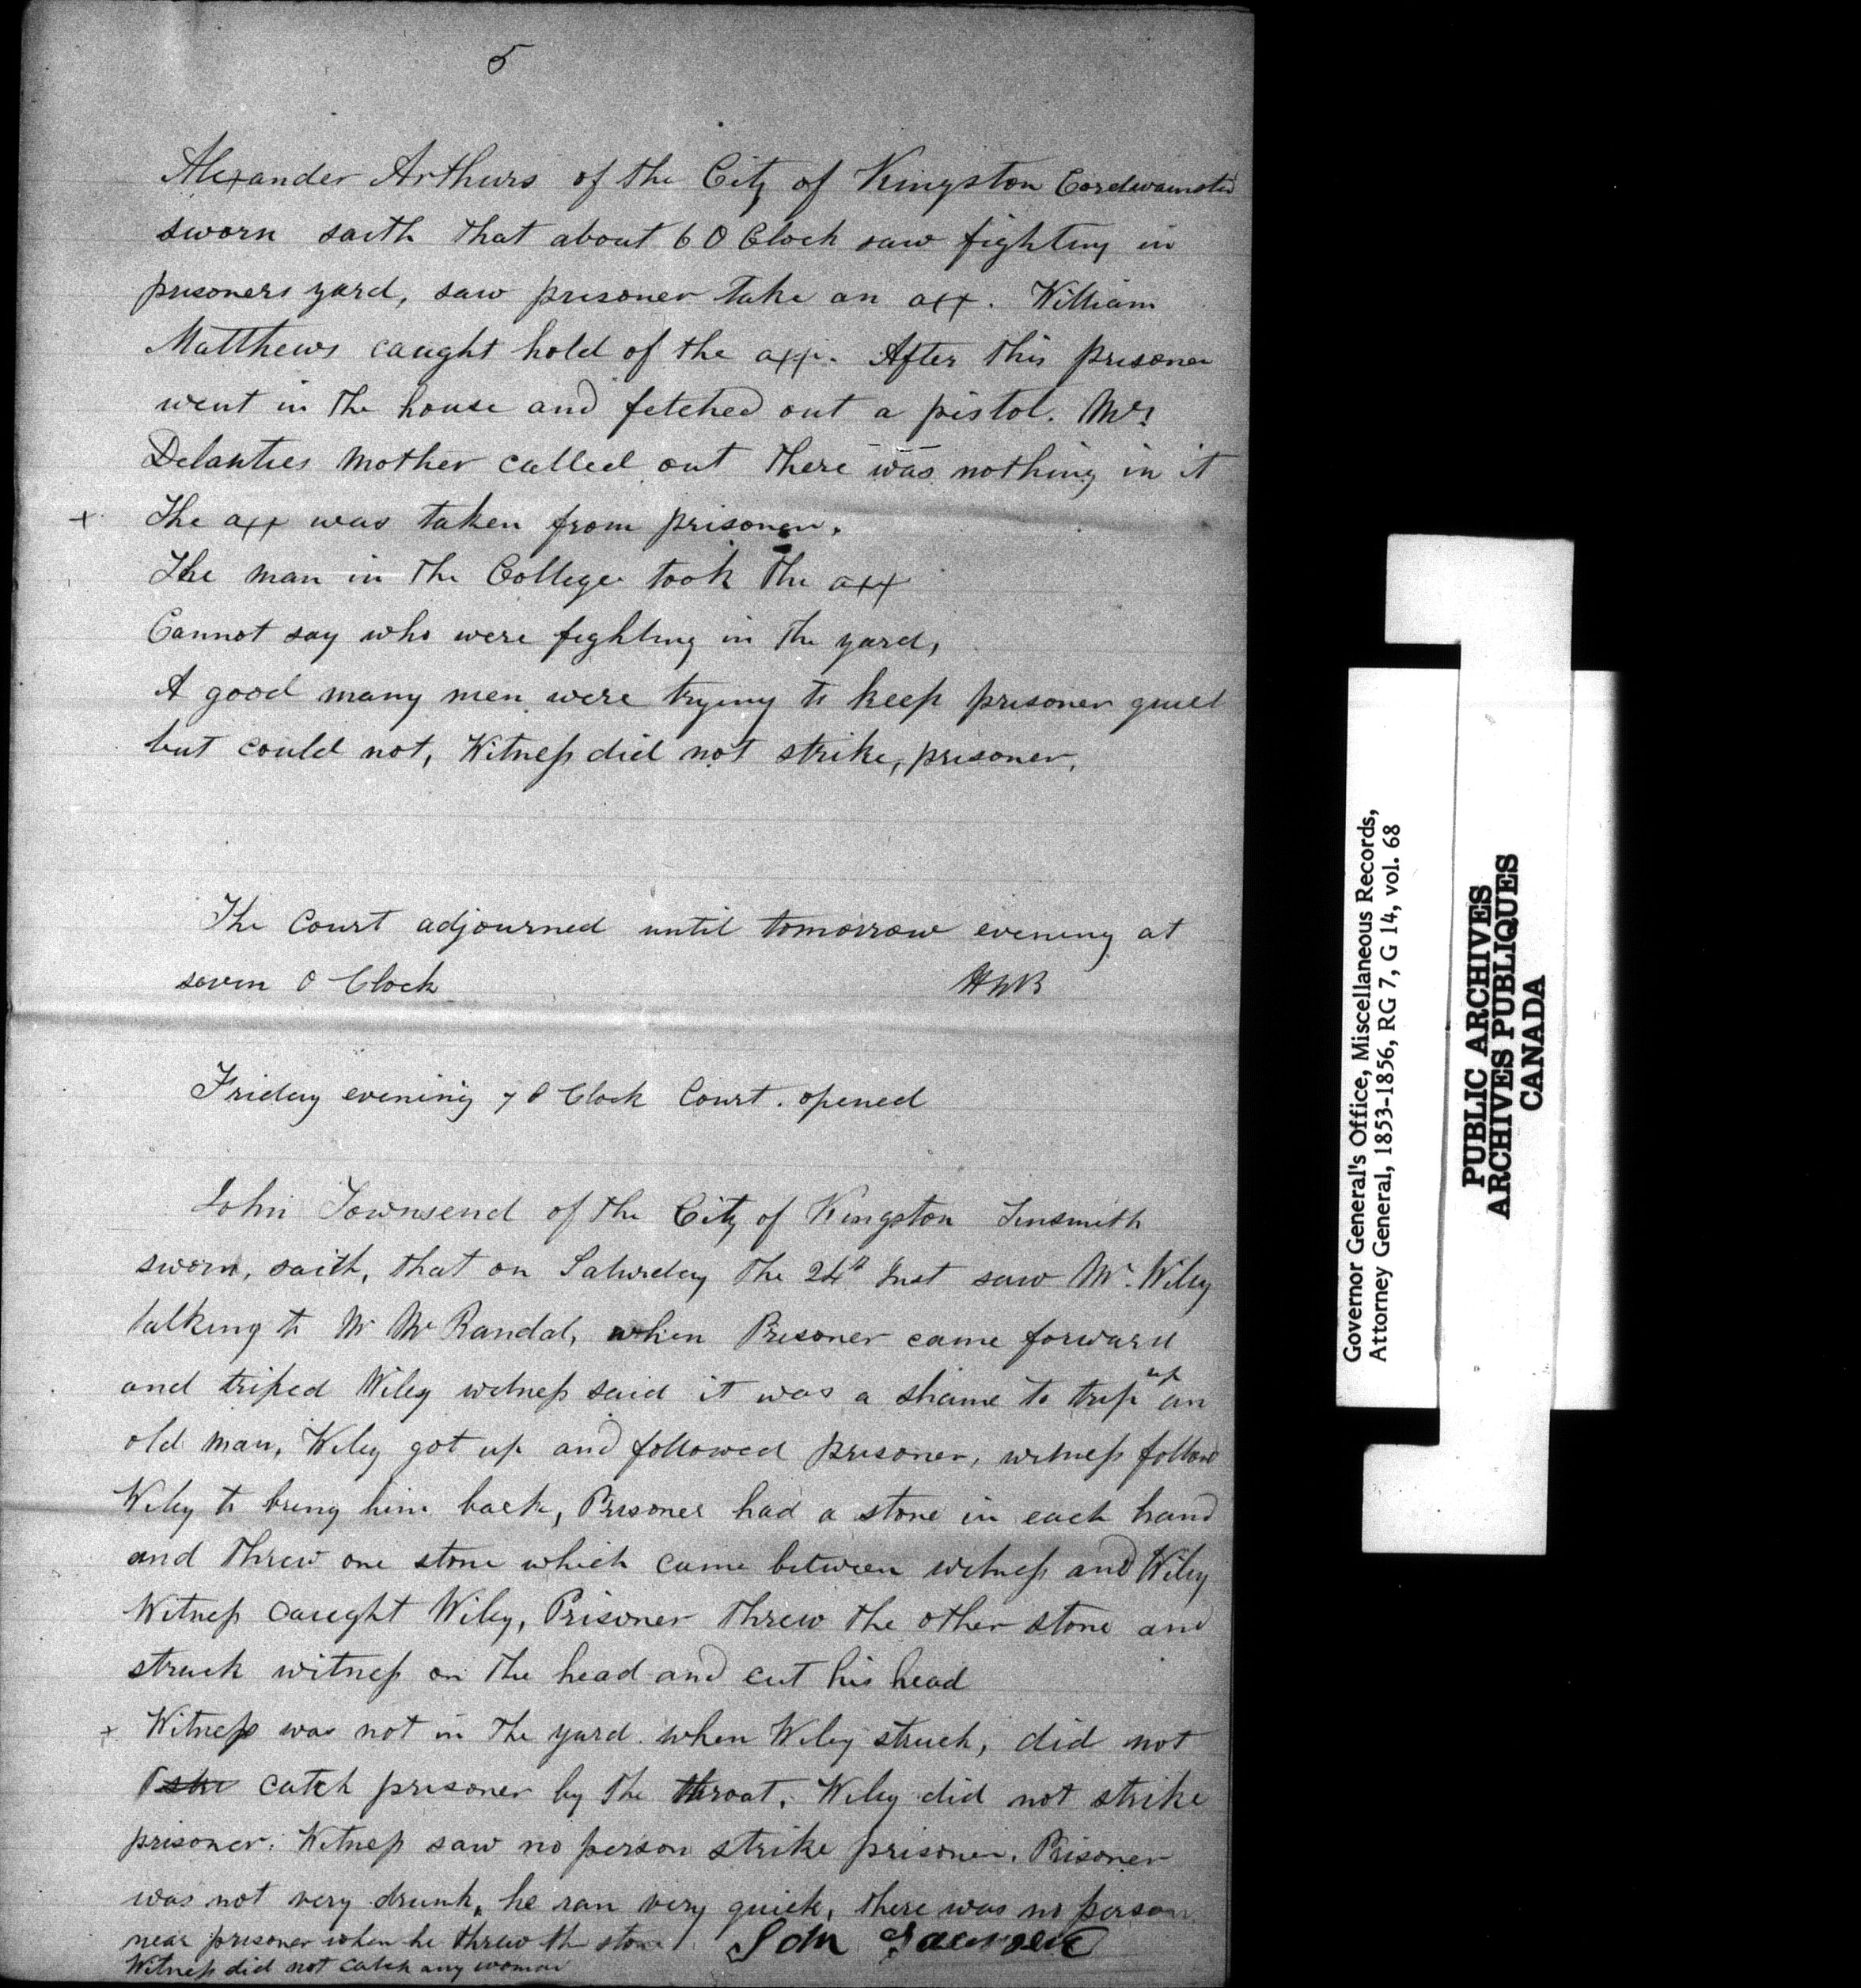 5
Alexander Arthurs of the City of Kingston Cordwainster
sworn saith that about 6 O Clock saw fighting in
prisoners yard, saw prisoner take an axx. William
Matthews caught hold of the axx. After this prisoner
went in the house and fetched out a pistol. Mrs
Delanties mother called out there was nothing in it
+ The axx was taken from prisoner.
The man in the College took the axx
Cannot say who were fighting in the yard,
A good many men were trying to keep prisoner quiet
but could not, Witness did not strike, prisoner.
The Court adjourned until tomorrow evening at
seven O Clock
Friday evening 7 O Clock Court opened
John Townsend of the City of Kingston Tinsmith
sworn, saith, that on Saturday the 24th Inst saw Mr. Wiley
talking to Mr McRandal, when Prisoner came forward
and triped Wiley witness said it was a shame to trip up an
old man, Wiley got up and followed prisoner, witness follow
Wiley to bring him back, Prisoner had a stone in each hand
and threw one stone which came between witness and Wiley
Witness caught Wiley, Prisoner threw the other stone and
struck witness on the head and cut his head
+ Witness was not in the yard when Wiley struck, did not
catch prisoner by the throat. Wiley did not strike
prisoner. Witness saw no person strike prisoner. Prisoner
was not very drunk, he ran very quick, there was no person
near prisoner when he threw th stone
Witness did not catch any woman
Governor General's Office, Miscellaneous Records,
Attorney General, 1853-1856, RG 7, G 14, vol. 68
PUBLIC ARCHIVES
ARCHIVES PUBLIQUES
CANADA